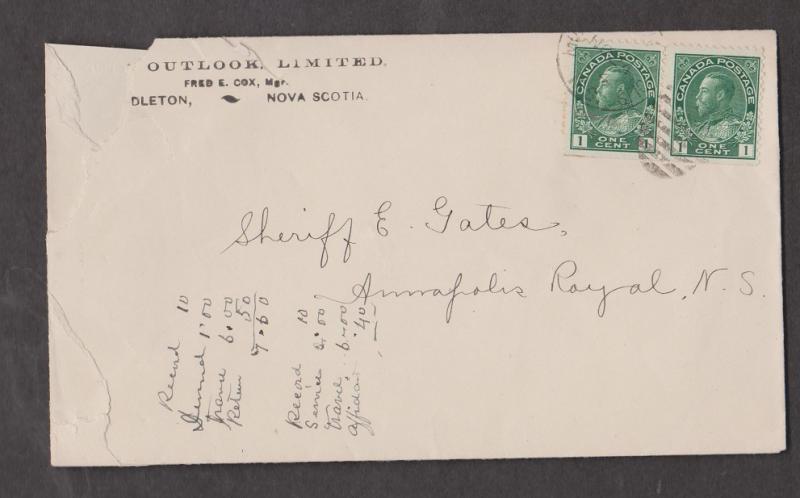 OUTLOOK, LIMITED.
FRED E. COX, Mgr.
DLETON, NOVA SCOTIA.
CANADA POSTAGE
1 ONE CENT 1
CANADA POSTAGE
1 ONE CENT 1
Sheriff E. Gates,
Annapolis Royal, N.S.
Record 10
1.00
travel 6.00
Return 50
7.60
Record 10
Service 2.00
travel 6.00
affidavit .40